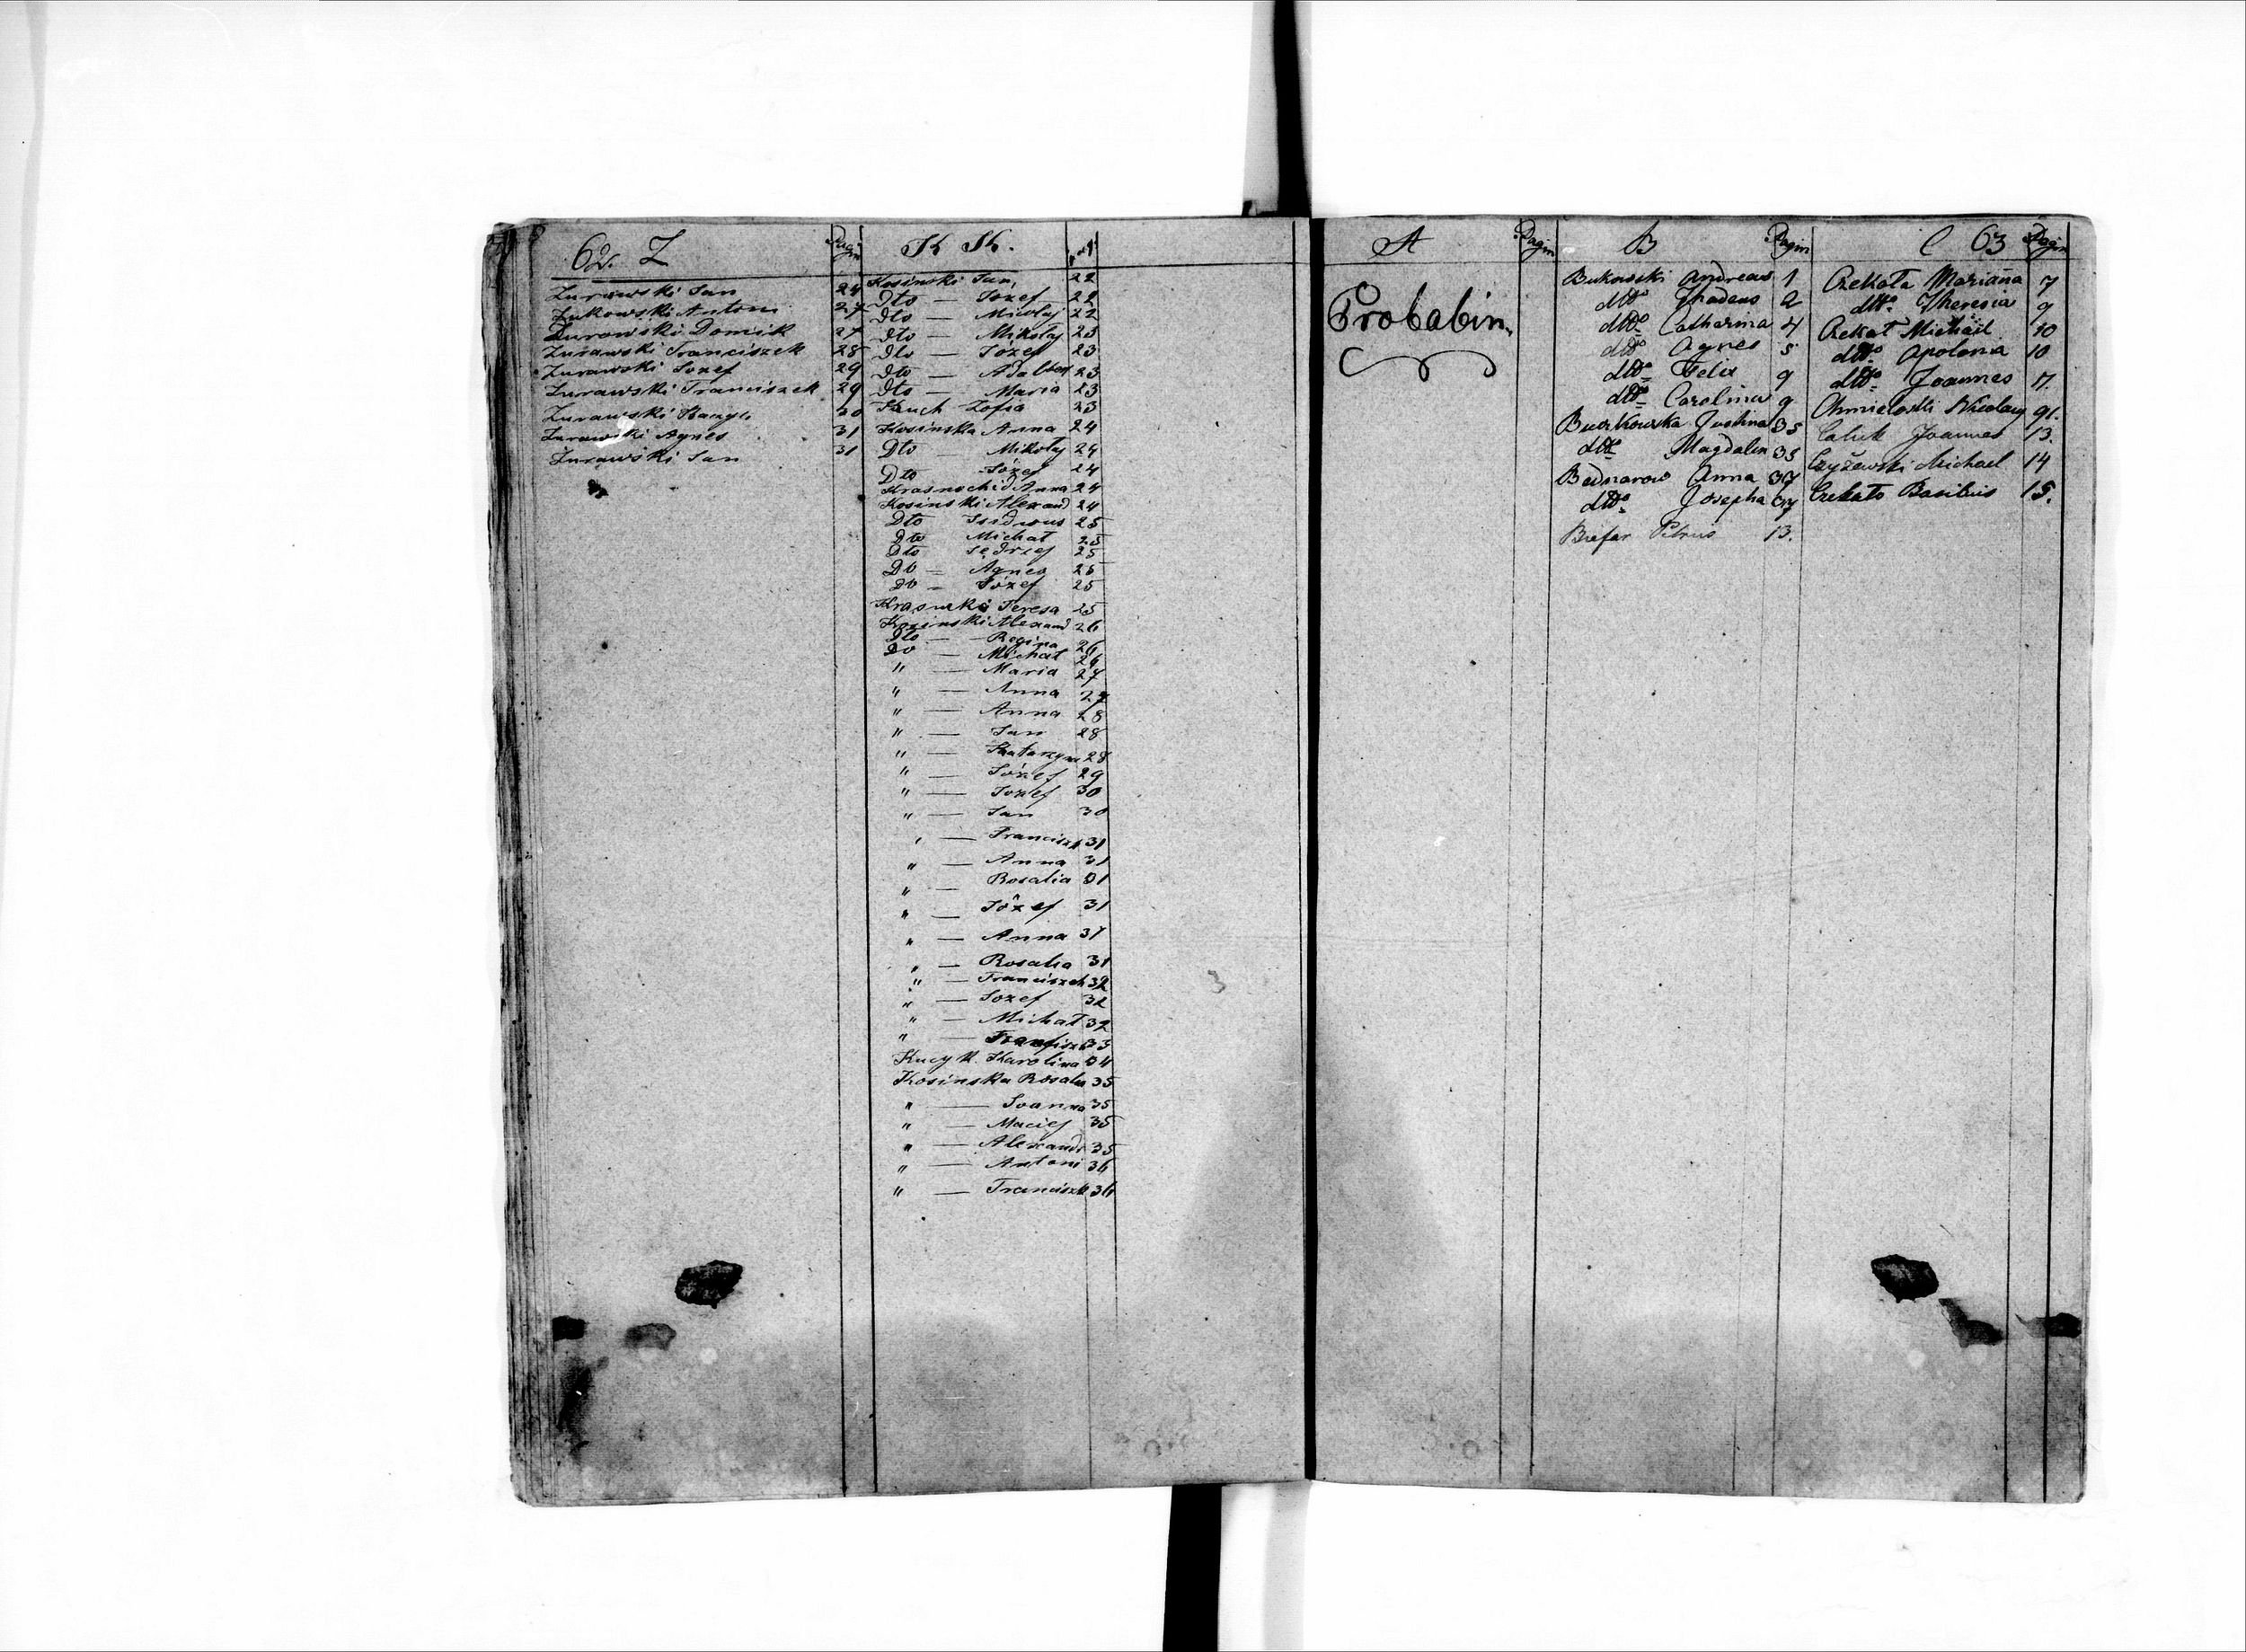 62. Z Pagin
Zurawski Jan 24
Zukowski Antoni 27
Zurowski Domik 27
Zurawski Franciszek 28
Zurawski Jozef 29
Zurawski Franciszek 29
Zurawski 30
Zurawski Agnes 31
Zurawski Jan 31
K K.
Kosinski Jan, 22
Dto — Jozef 22
Dto — Micolaj 22
Dto — Mikołaj 23
Dto — Józef 23
Dto — Adalbert 23
Dto — Maria 23
Kruch Zofia 23
Kosinska Anna 24
Dto — Mikołaj 24
Dto Józef 24
Anna 24
Kosinski Alexand 24
Dto Isidorus 25
Dto Michał 25
Dto Jędrzej 25
Do — Agnes 25
Do — Józef 25
Teresa 25
Kosinski Alexand 26
Dto — Regina 26
Do — Michał 26
" — Maria 27
" — Anna 27
" — Anna 28
" — Jan 28
" — Katarzyna 28
" — Józef 29
" — Jozef 30
" — Jan 30
" — Franciszk 31
" — Anna 31
" — Rosalia 31
" — Józef 31
" — Anna 31
" — Rosalia 31
" — Franciszek 32
" — Jozef 32
" — Michał 32
" — Franciszk 33
Karolina 34
Kosinska Rosalia 35
" — Joanna 35
" — Maciej 35
" — Alexandr 35
" — Antoni 36
" — Franciszk 36
3
A Pagin
Probabin.
B Pagin
Bukowski Andreas 1
dtto Thadeus 2
dtto Catharina 4
dtto Agnes 5
dtto Felix 9
dtto Carolina 9
Justina 35
dtto Magdalen 35
Bednarow Anna 37
dtto Josepha 37
Petrus 13.
C 63 Pagin
Czekała Marianna 7
dtto Theresia 9
Czekał Michäil 10
dtto Apolonia 10
dtto Joannes 17.
Nicolaus 91.
Joannes 13.
Czyżewski Michael 14
Basilius 15.